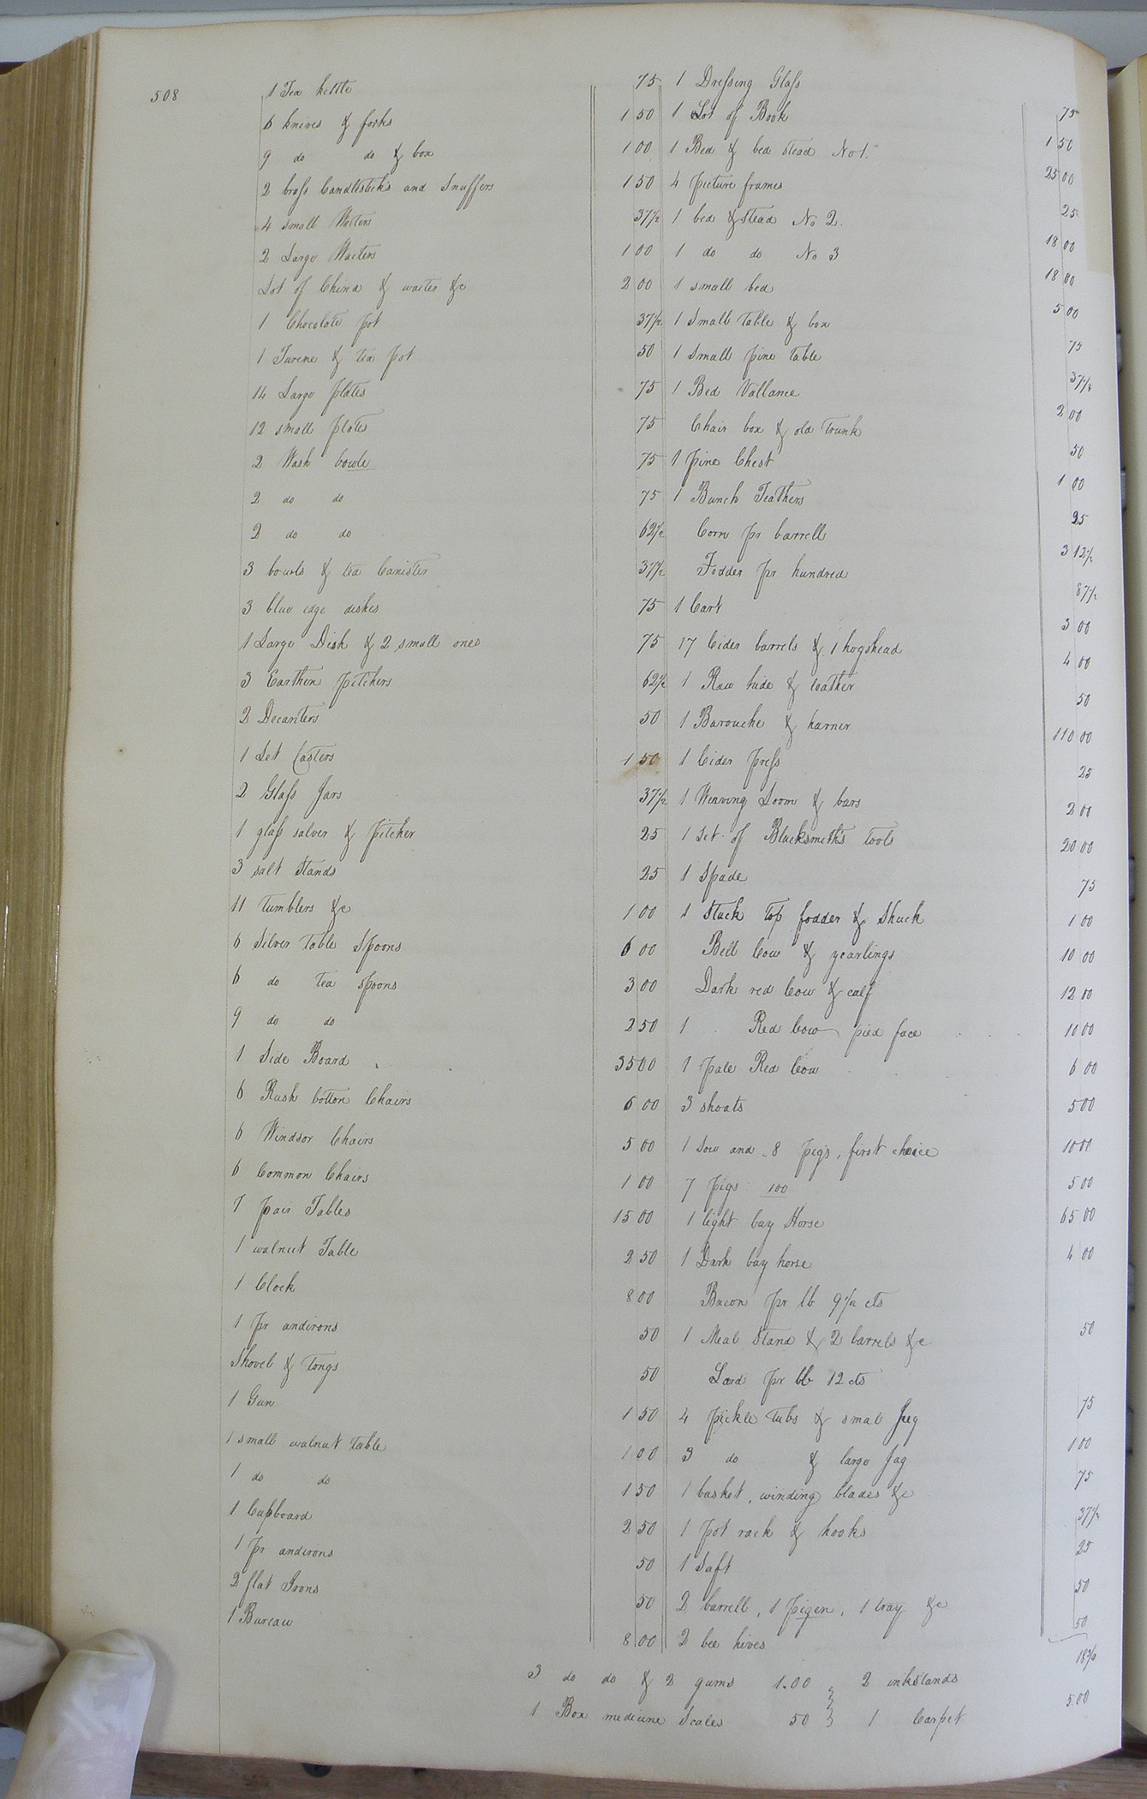 508
1 Tea kettle 75
6 knives & forks 1 50
9 do do & box 1 00
2 brass Candlesticks and Snuffers 1 50
4 small Waiters 37½
2 Large Waiters 1 00
Lot of China & waiter &c 2 00
1 Chocolate pot 37½
1 Turene & tea pot 50
14 Large plates 75
12 small plates 75
2 Wash bowls 75
2 do do 75
2 do do 62½
3 bowls & tea Canister 37½
3 blue edge dishes 75
1 Large Dish & 2 small ones 75
3 Earthen pitchers 62½
2 Decanters 50
1 Set Casters 1 50
2 Glass Jars 37½
1 glass salver & pitcher 25
3 salt Stands 25
11 tumblers &c 1 00
6 Silver table Spoons 6 00
6 do tea spoons 3 00
9 do do 2 50
1 Side Board 35 00
6 Rush bottom Chairs 6 00
6 Windsor Chairs 5 00
6 Common Chairs 1 00
1 pair Tables 15 00
1 walnut Table 2 50
1 Clock 8 00
1 pr andirons 50
Shovel & Tongs 50
1 Gun 1 50
1 small walnut Table 1 00
1 do do 1 50
1 Cupboard 2 50
1 pr andirons 50
2 flat Irons 50
1 Bureau 8 00
1 Dressing Glass 75
1 Lot of Book 1 50
1 Bed & bed Stead No 1. 25 00
4 picture frames 25
1 bed & Stead No 2. 18 00
1 do do No 3 18 00
1 small bed 5 00
1 Small Table & box 75
1 small pine Table 37½
1 Bed Vallance 2 00
Chair box & old trunk 50
1 pine Chest 1 00
1 Bunch Feathers 25
Corn pr barrell 3 12½
Fodder pr hundred 87½
1 Cart 3 00
17 Cider barrels & 1 hogshead 4 00
1 Raw hide & leather 50
1 Barouche & harner 110 00
1 Cider press 25
1 Weaving Loom & bars 2 00
1 Set of Blacksmiths tools 20 00
1 Spade 75
1 Stack Top fodder & Shuck 1 00
Bell Cow & yearlings 10 00
Dark red Cow & calf 12 00
1 Red Cow pied face 10 00
1 pale Red Cow 6 00
3 shoats 5 00
1 Sow and 8 pigs, first choice 10 00
7 pigs 100 5 00
1 light bay Horse 65 00
1 Dark bay horse 4 00
Bacon pr lb 9½ cts
1 Meal Stand & 2 barrels &c 50
Lard pr lb 12 cts
4 pickle tubs & smal Jug 75
3 do & large Jag 1 00
1 basket, winding blades &c 75
1 pot rack & hooks 37½
1 Saft 25
2 barrell, 1 pigen, 1 tray &c 50
2 bee hives 50
3 do do & 2 gums 1.00 2 inkstands 18¾
1 Box medicine Scales 50 1 Carpet 5.00